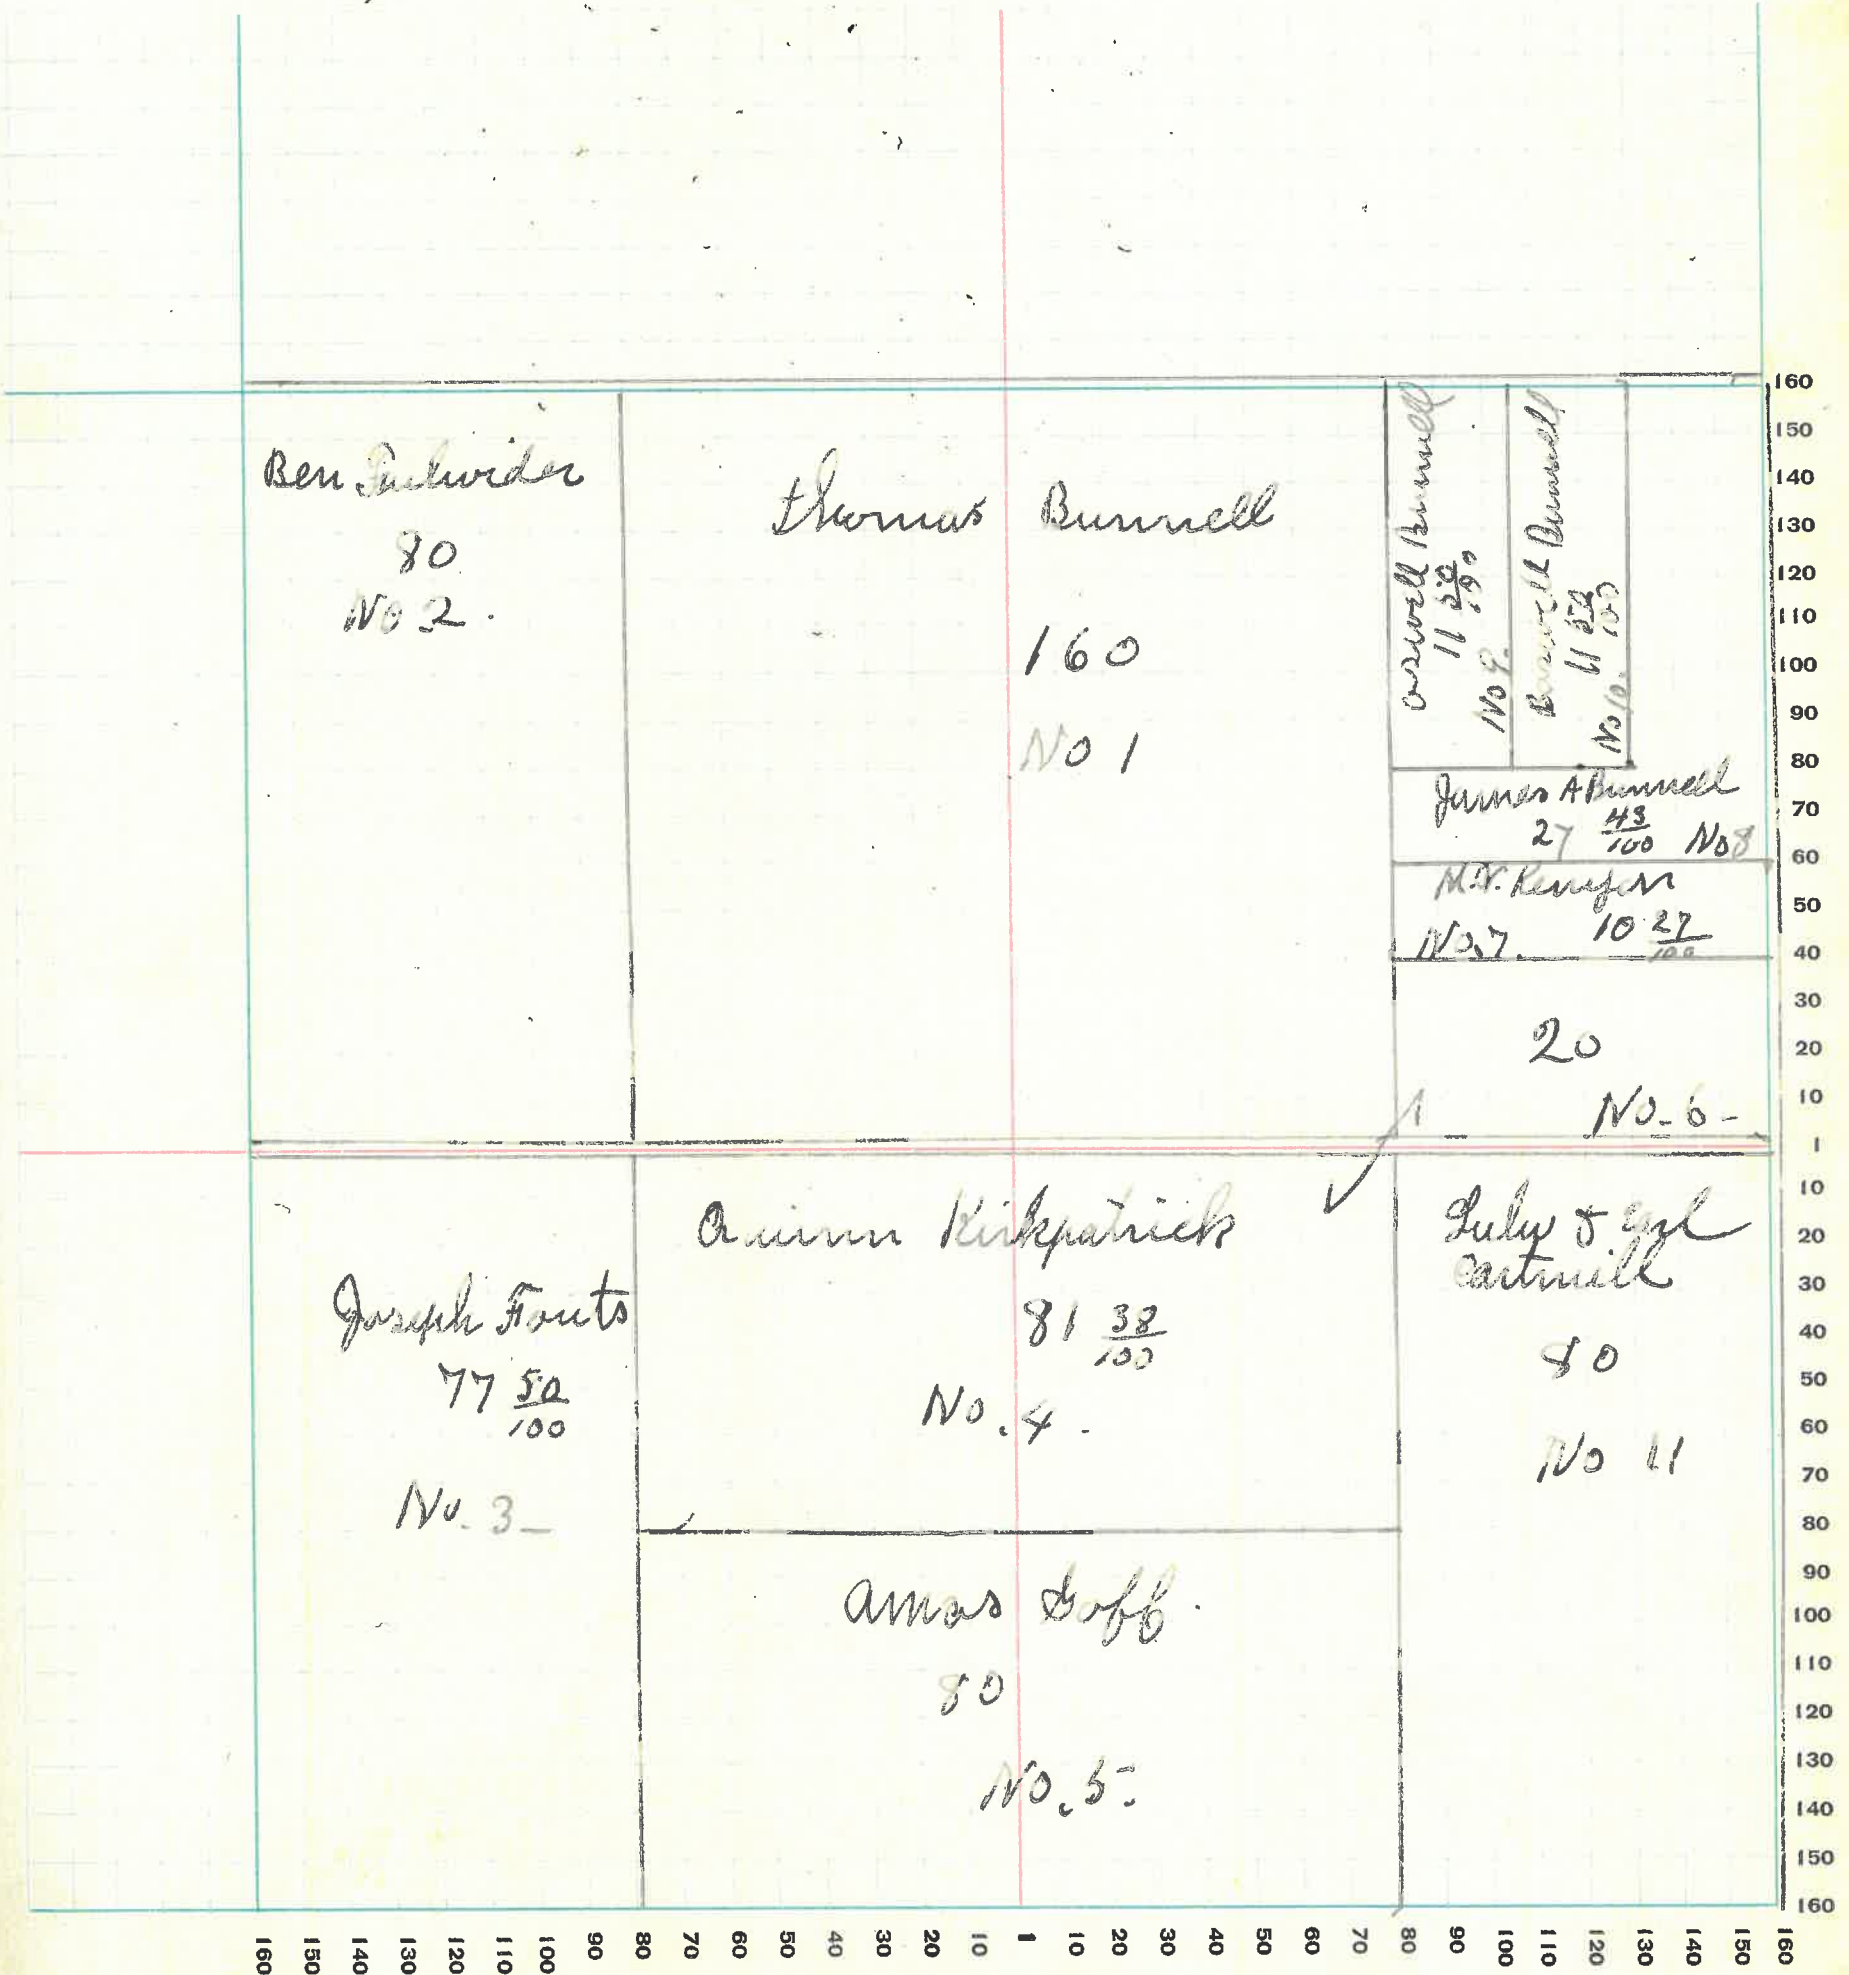 Ben Fulwider
80
No 2.
Thomas Bunnell
160
No 1
Bunnell
11 50/100
No 9.
Bunnell
11 50/100
No 10.
James A Bunnell
27 43/100 No 8
M.V.
No. 7. 10 27/100
20
No. 6-
Joseph Fouts
77 50/100
No. 3-
Quinn Kirkpatrick
81 38/100
No. 4.
Amos Goff.
80
No. 5.
Lulu &
Cartmill
80
No 11
160
150
140
130
120
110
100
90
80
70
60
50
40
30
20
10
1
10
20
30
40
50
60
70
80
90
100
110
120
130
140
150
160
160 150 140 130 120 110 100 90 80 70 60 50 40 30 20 10 1 10 20 30 40 50 60 70 80 90 100 110 120 130 140 150 160